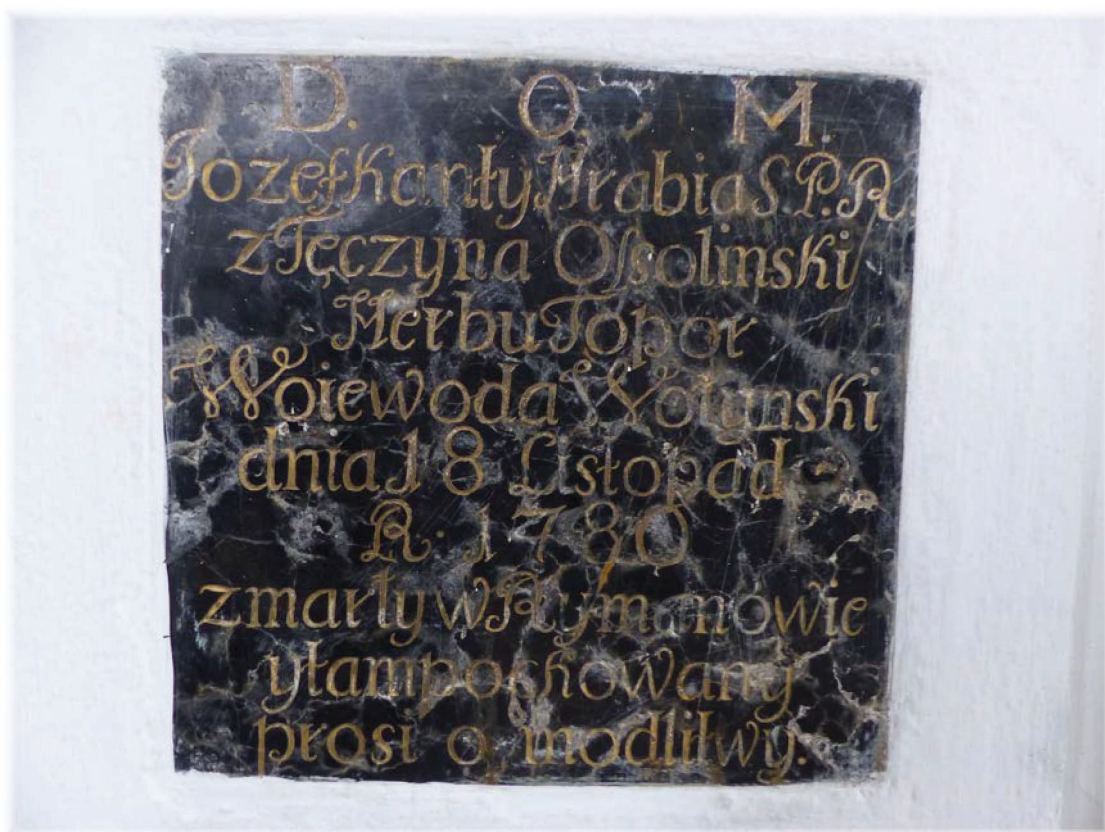 D. O. M.
Jozef Kanty Hrabia S. P. R.
z Tęczyna Ossolinski
Herbu Topor
Woiewoda Wołynski
dnia 18 Listopad
R. 1780
zmarły w Rymanowie
y tam pochowany
prosi o modlitwy.